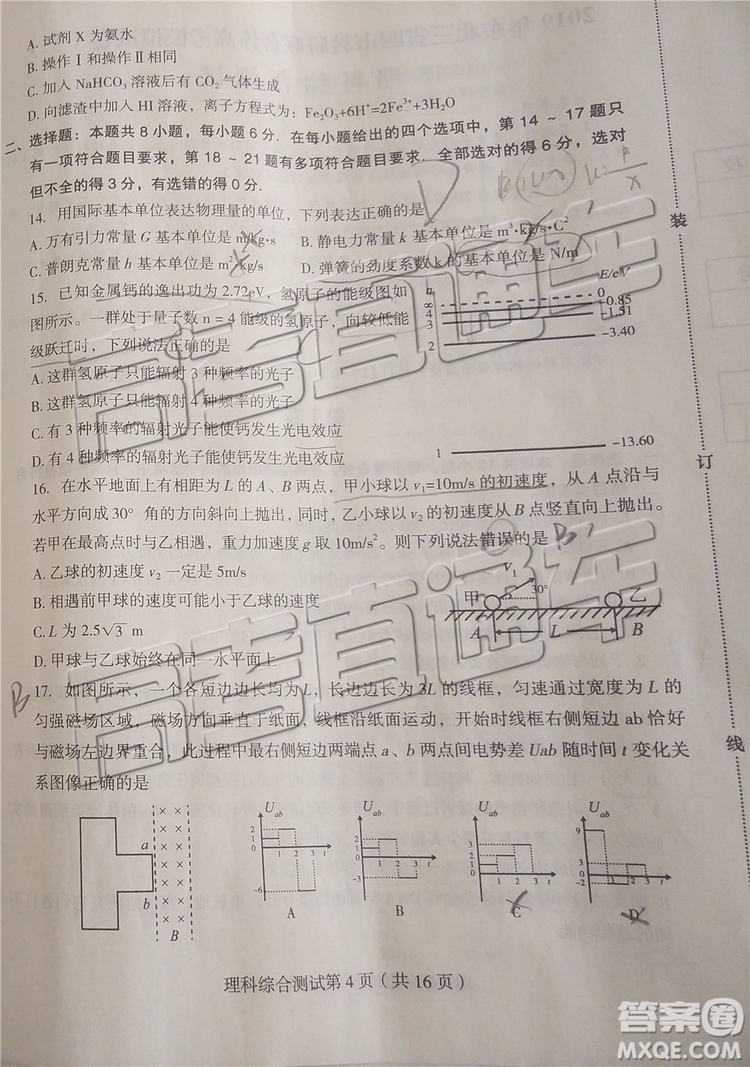 A. 试剂 X 为氨水
B. 操作Ⅰ和操作Ⅱ相同
C. 加入 NaHCO₃ 溶液后有 CO₂ 气体生成
D. 向滤渣中加入 HI 溶液，离子方程式为：Fe₂O₃+6H⁺=2Fe³⁺+3H₂O
二、选择题：本题共 8 小题，每小题 6 分．在每小题给出的四个选项中，第 14 ~ 17 题只
有一项符合题目要求，第 18 ~ 21 题有多项符合题目要求．全部选对的得 6 分，选对
但不全的得 3 分，有选错的得 0 分．
14. 用国际基本单位表达物理量的单位，下列表达正确的是
A. 万有引力常量 G 基本单位是 m³/kg·s B. 静电力常量 k 基本单位是 m³·kg/s·C²
C. 普朗克常量 h 基本单位是 m²·kg/s D. 弹簧的劲度系数 k 的基本单位是 N/m
15. 已知金属钙的逸出功为 2.72eV，氢原子的能级图如
图所示。一群处于量子数 n = 4 能级的氢原子，向较低能
级跃迁时，下列说法正确的是
A. 这群氢原子只能辐射 3 种频率的光子
B. 这群氢原子只能辐射 4 种频率的光子
C. 有 3 种频率的辐射光子能使钙发生光电效应
D. 有 4 种频率的辐射光子能使钙发生光电效应
n E/eV
∞ 0
4 -0.85
3 -1.51
2 -3.40
1 -13.60
16. 在水平地面上有相距为 L 的 A、B 两点，甲小球以 v₁=10m/s 的初速度，从 A 点沿与
水平方向成 30° 角的方向斜向上抛出，同时，乙小球以 v₂ 的初速度从 B 点竖直向上抛出。
若甲在最高点时与乙相遇，重力加速度 g 取 10m/s²。则下列说法错误的是 B
A. 乙球的初速度 v₂ 一定是 5m/s
B. 相遇前甲球的速度可能小于乙球的速度
C. L 为 2.5√3 m
D. 甲球与乙球始终在同一水平面上
甲 v₁ 30° 乙
A L B
B
17. 如图所示，一个各短边边长均为 L，长边边长为 3L 的线框，匀速通过宽度为 L 的
匀强磁场区域，磁场方向垂直于纸面，线框沿纸面运动，开始时线框右侧短边 ab 恰好
与磁场左边界重合，此过程中最右侧短边两端点 a、b 两点间电势差 Uab 随时间 t 变化关
系图像正确的是
a b B
U_ab 2 1 0 -6 1 2 3 t A
U_ab 2 1 0 -3 1 2 3 t B
U_ab 3 2 1 0 1 2 3 t C
U_ab 9 3 0 -2 1 2 3 t D
理科综合测试第 4 页（共 16 页）
装
订
线
高考直通车
高考直通车
答案圈
MXQE.COM